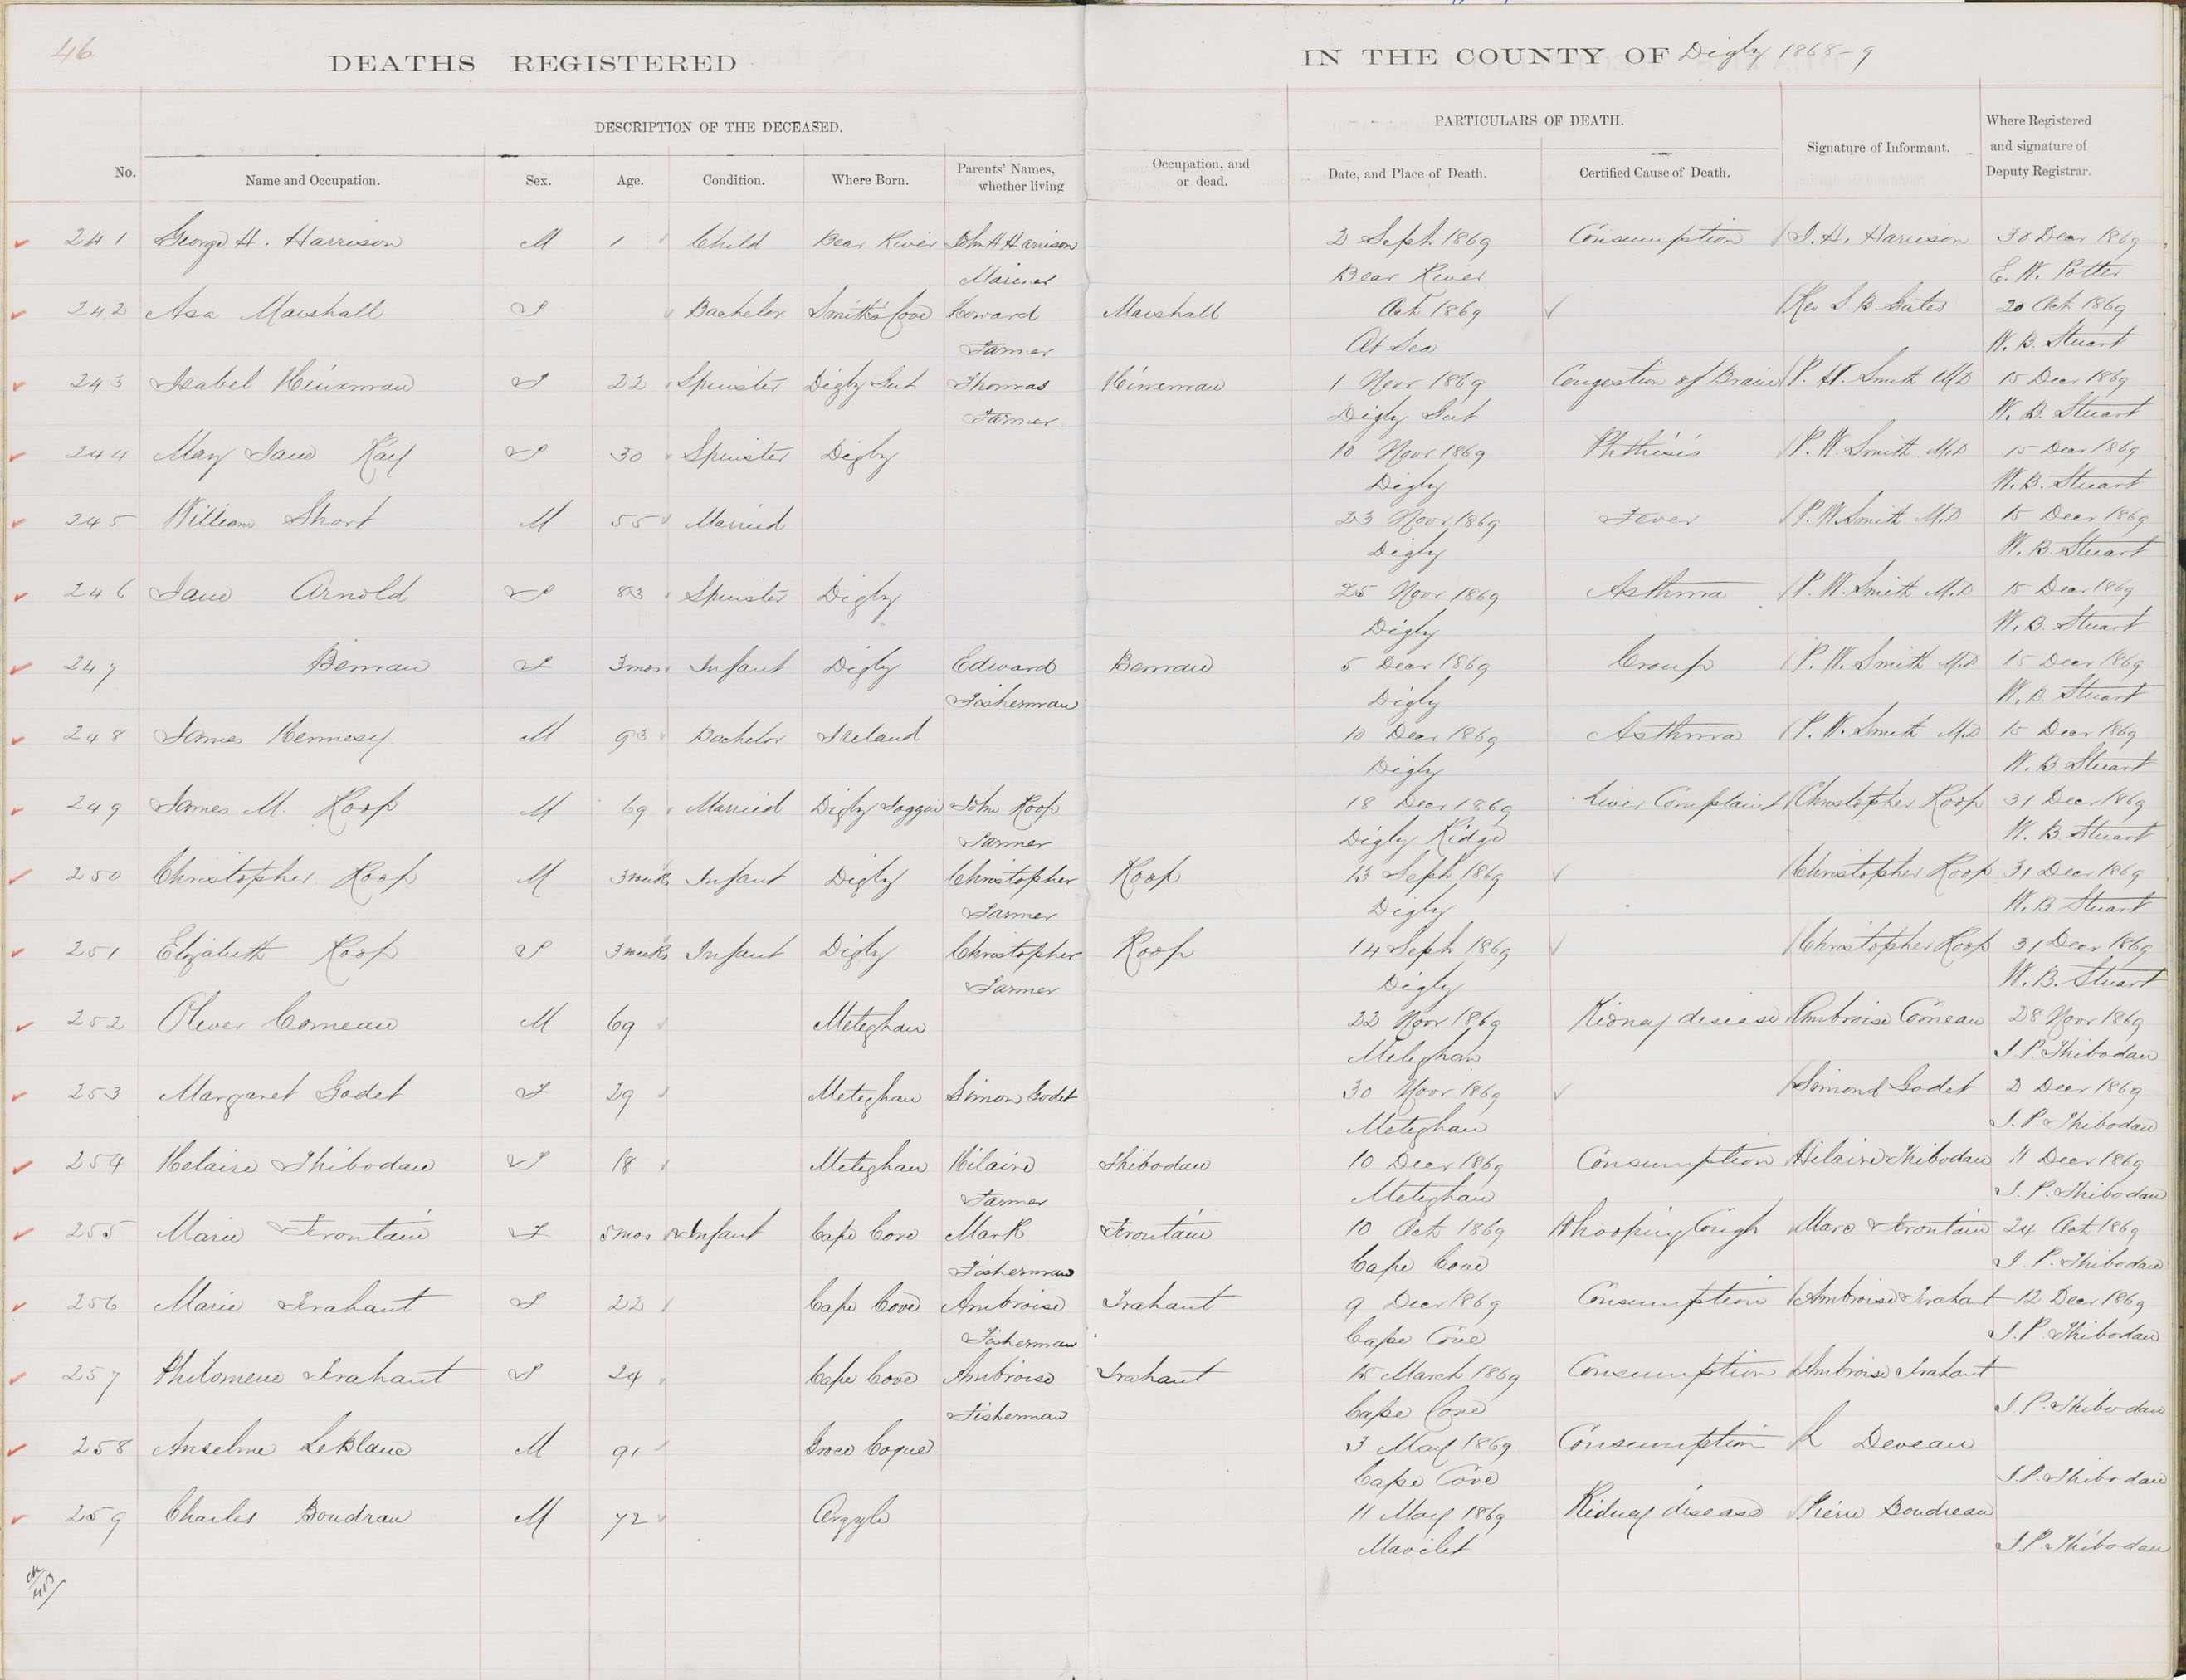 46
DEATHS REGISTERED IN THE COUNTY OF Digby 1868-9
DESCRIPTION OF THE DECEASED. PARTICULARS OF DEATH.
No. Name and Occupation. Sex. Age. Condition. Where Born. Parents' Names, whether living Occupation, and or dead. Date, and Place of Death. Certified Cause of Death. Signature of Informant. Where Registered and signature of Deputy Registrar.
241 George H. Harrison M 1 Child Bear River John H Harrison 2 Sept 1869 Consumption J. H. Harrison 30 Decr 1869
Mariner Bear River E. W. Potter
242 Asa Marshall F Bachelor Smith's Cove Howard Marshall Oct 1869 Rev S. B. Gates 20 Oct 1869
Farmer At Sea W. B. Stuart
243 Isabel Hinxman F 22 Spinster Digby Gut Thomas Hinxman 1 Novr 1869 Congestion of Brain P. W. Smith MD 15 Decr 1869
Farmer Digby Gut W. B. Stuart
244 Mary Jane Ray F 30 Spinster Digby 10 Novr 1869 Phthisis P. W. Smith M.D 15 Decr 1869
Digby W. B. Stuart
245 William Short M 55 Married 23 Novr 1869 Fever P. W Smith M.D 15 Decr 1869
Digby W. B. Stuart
246 Jane Arnold F 83 Spinster Digby 25 Novr 1869 Asthma P. W. Smith M.D 15 Decr 1869
Digby W. B. Stuart
247 Benman F 3 mos Infant Digby Edward Benman 5 Decr 1869 Croup P. W. Smith M.D 15 Decr 1869
Fisherman Digby W. B. Stuart
248 James Hennesy M 93 Bachelor Ireland 10 Decr 1869 Asthma P. W. Smith M.D 15 Decr 1869
Digby W. B. Stuart
249 James M. Roop M 69 Married Digby Joggin John Roop 18 Decr 1869 Liver Complaint Christopher Roop 31 Decr 1869
Farmer Digby Ridge W. B. Stuart
250 Christopher Roop M 3 weeks Infant Digby Christopher Roop 13 Sept 1869 Christopher Roop 31 Decr 1869
Farmer Digby W. B Stuart
251 Elizabeth Roop F 3 weeks Infant Digby Christopher Roop 14 Sept 1869 Christopher Roop 31 Decr 1869
Farmer Digby W. B. Stuart
252 Oliver Comeau M 69 Meteghan 22 Novr 1869 Kidney disease Ambroise Comeau 28 Novr 1869
Meteghan J. P. Thibodau
253 Margaret Godet F 29 Meteghan Simon Godet 30 Novr 1869 Simond Godet 2 Decr 1869
Meteghan J. P. Thibodau
254 Helaire Thibodau F 18 Meteghan Hilaire Thibodau 10 Decr 1869 Consumption Hilaire Thibodau 11 Decr 1869
Farmer Meteghan J. P. Thibodau
255 Marie Frontain F 5 mos Infant Cape Cove Mark Frontain 10 Oct 1869 Whooping Cough Marc Frontain 24 Oct 1869
Fisherman Cape Cove J. P. Thibodau
256 Marie Trahant F 22 Cape Cove Ambroise Trahant 9 Decr 1869 Consumption Ambroise Trahant 12 Decr 1869
Fisherman Cape Cove J. P Thibodau
257 Philomene Trahant F 24 Cape Cove Ambroise Trahant 15 March 1869 Consumption Ambroise Trahant
Fisherman Cape Cove J P. Thibodau
258 Anselme LeBlanc M 91 Groce Coque 3 May 1869 Consumption L Deveau
Cape Cove J. P. Thibodau
259 Charles Boudrau M 72 Argyle 11 May 1869 Kidney disease Pierre Boudreau
Mavilet J P. Thibodau